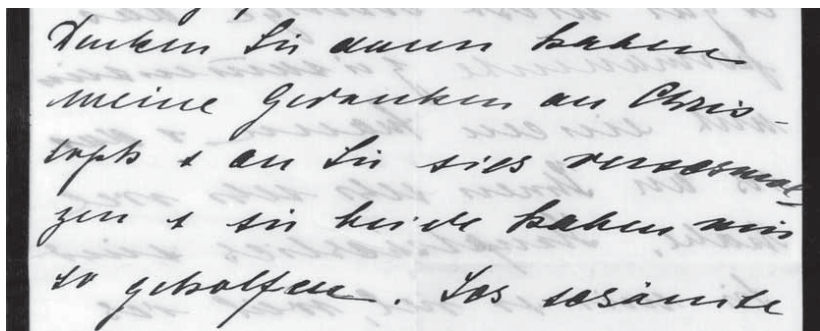 Denken Sie daran haben
meine Gedanken an Chris-
toph + an Sie sich verschmol-
zen + Sie beide haben mir
so geholfen. Das